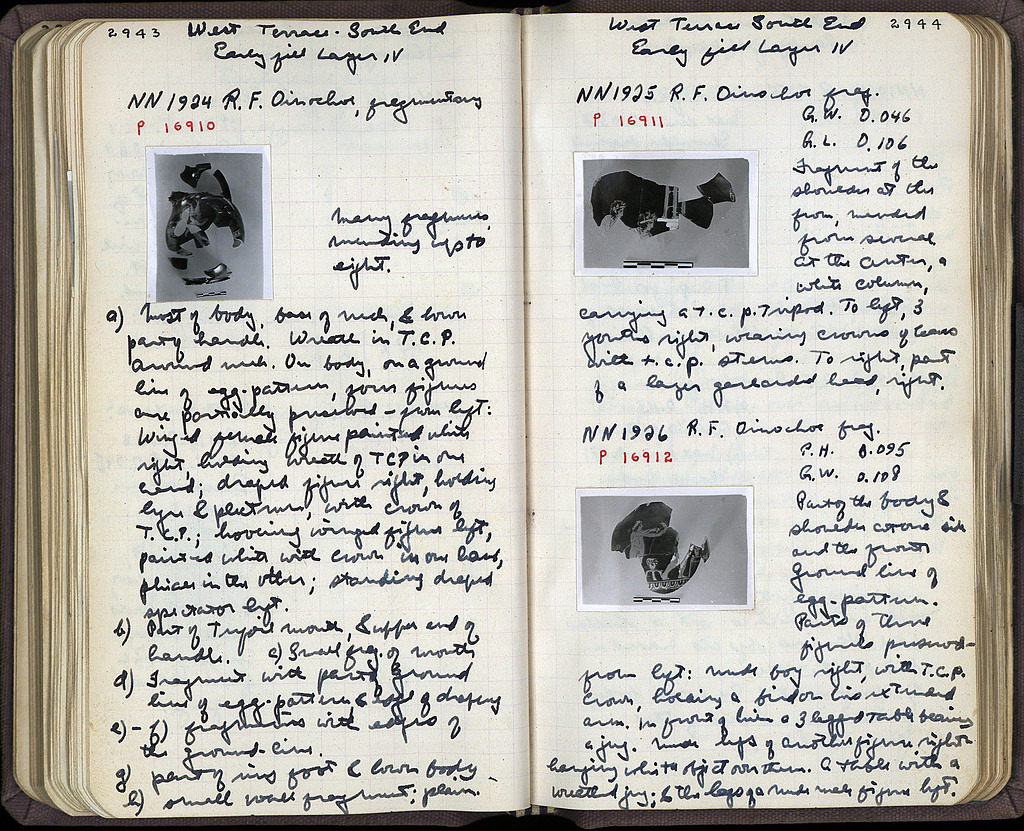 2943 West Terrace. South End
Early fill Layer IV
NN 1924 R. F. Oinochoe, fragmentary
P 16910
Many fragments,
mending up to
eight.
a) Most of body, base of neck, & lower
part of handle. Wreath in T.C.P.
around neck. On body, on a ground
line of egg-pattern, four figures
are partially preserved - from left:
Winged female figure painted white
right, holding wreath of TCP in one
hand; draped figure right, holding
lyre & plectrum, with crown of
T.C.P.; hovering winged figure left,
painted white with crown in one hand,
phiale in the other; standing draped
spectator left.
b) Part of Trefoil mouth, & upper end of
handle. c) Small frag. of mouth
d) Fragment with part of ground
line of egg-pattern & edge of drapery
e) - f) fragments with edges of
the ground-line.
g) part of ring foot & lower body -
h) small wall fragment; plain.
West Terrace South End 2944
Early fill Layer IV
NN1925 R. F. Oinochoe frag.
P 16911
G. W. 0.046
G. L. 0.106
Fragment of the
shoulder at the
front, mended
from several
at the center, a
white column,
carrying a t.c.p. tripod. To left, 3
youths right, wearing crowns of leaves
with t.c.p. stems. To right, part
of a larger garlanded head, right.
NN1926 R. F. Oinochoe frag.
P 16912
P.H. 0.095
G.W. 0.108
Part of the body &
shoulder at one side
and the front
Ground line of
egg-pattern.
Parts of three
figures preserved -
from left: nude boy right, with T.C.P.
crown, holding a bird on his extended
arm. In front of him a 3 legged table bearing
a jug. Nude legs of another figure, right
hanging white object over them. A table with a
wreathed jug; & the legs of a nude male figure left.